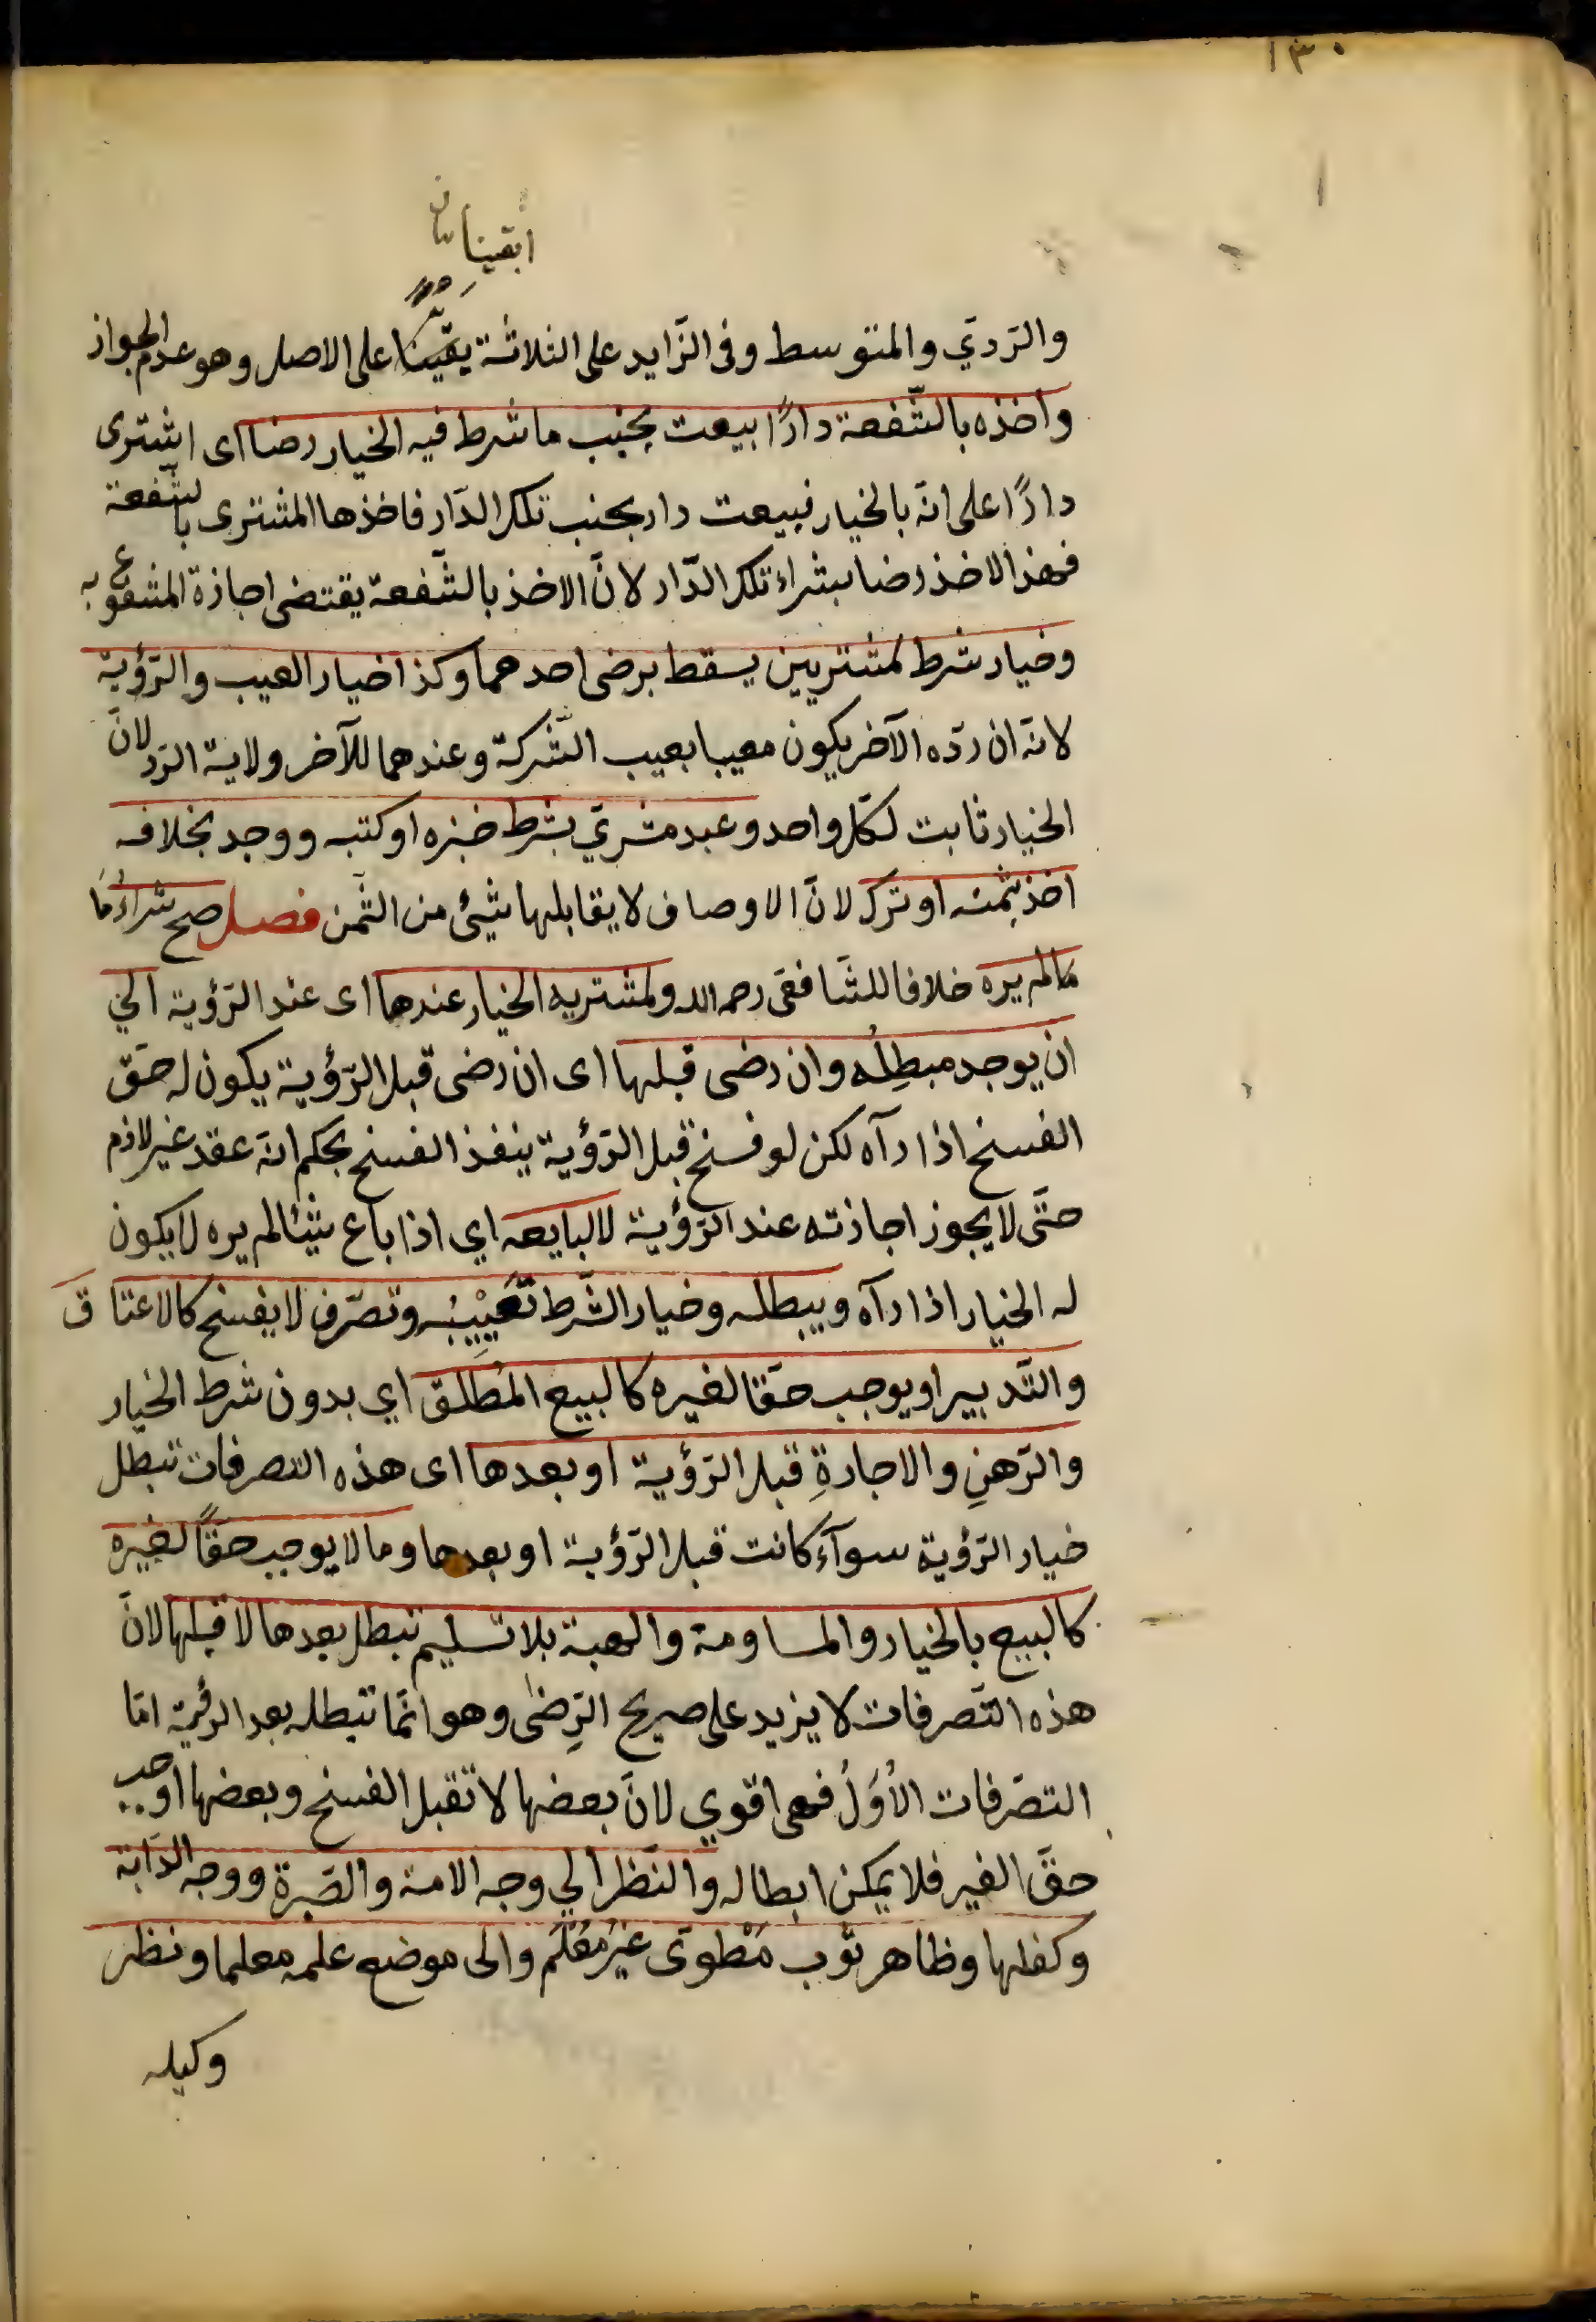 ١٣٠
ابقينا
والرّديّ والمتوسط وفى الزّايد على الثلاثة يقّينا على الاصل وهو عدم الجواز
واخذه بالشّفعة دارًا بيعت بجنب ما شرط فيه الخيار رضا اى اشترى
دارًا على انّه بالخيار فبيعت دار بجنب تلك الدّار فاخذها المشترى بالشّفعة
فهذا الاخذ رضا بشراء تلك الدّار لانّ الاخذ بالشّفعة يقتضى اجازة المشفوع به
وخيار شرط لمشتريين يسقط برضى احدهما وكذا خيار العيب والرّؤية
لانّه ان ردّه الآخر يكون معيبا بعيب الشّركة وعندهما للآخر ولاية الرّد لانّ
الخيار ثابت لكلّ واحد وعبد مشريّ بشرط خبزه او كتبه ووجد بخلافه
اخذ بثمنه او ترك لانّ الاوصاف لا يقابلها شيئ من الثّمن فصل صح شراءُ مَا
مالم يره خلافا للشّافعّى رحمه الله ولمشتريه الخيار عندها اى عند الرّؤية الي
ان يوجد مبطِلُه وان رضى قبلها اى ان رضى قبل الرّؤية يكون له حقّ
الفسخ اذا رآه لكن لو فسخ قبل الرّؤية ينفذ الفسخ بحكم انّه عقد غير لازم
حتّى لا يجوز اجازته عند الرّؤية لا لبايعه اي اذا باع شيئا لم يره لا يكون
له الخيار اذا رآه ويبطله وخيار الشّرط تَعْيِيْبُه وتصرّف لا يفسخ كالاعتاق
والتّدبير او يوجب حقّا لغيره كالبيع المُطلَق اي بدون شرط الخيار
والرّهنِ والاجارةِ قبل الرّؤية او بعدها اى هذه التصرفات تبطل
خيار الرّؤية سوآء كانت قبل الرّؤية او بعدها وما لا يوجب حقًّا لغيره
كالبيع بالخيار والمساومة والهبة بلا تسليم تبطل بعدها لا قبلها لانّ
هذه التّصرفات لا يزيد على صريح الرِضىٰ وهو انّما تبطله بعد الرؤية امّا
التصّرفات الأُوَلُ فهى اقوي لانّ بعضها لا تقبل الفسخ وبعضها اوجب
حقّ الغير فلا يمكن ابطاله والنّظر الي وجه الامة والصّبرة ووجه الدّابة
وكفلها وظاهر ثوب مَطْوىّ غيْرُ مُعْلَم والى موضع علمه معلما ونظر
وكيله